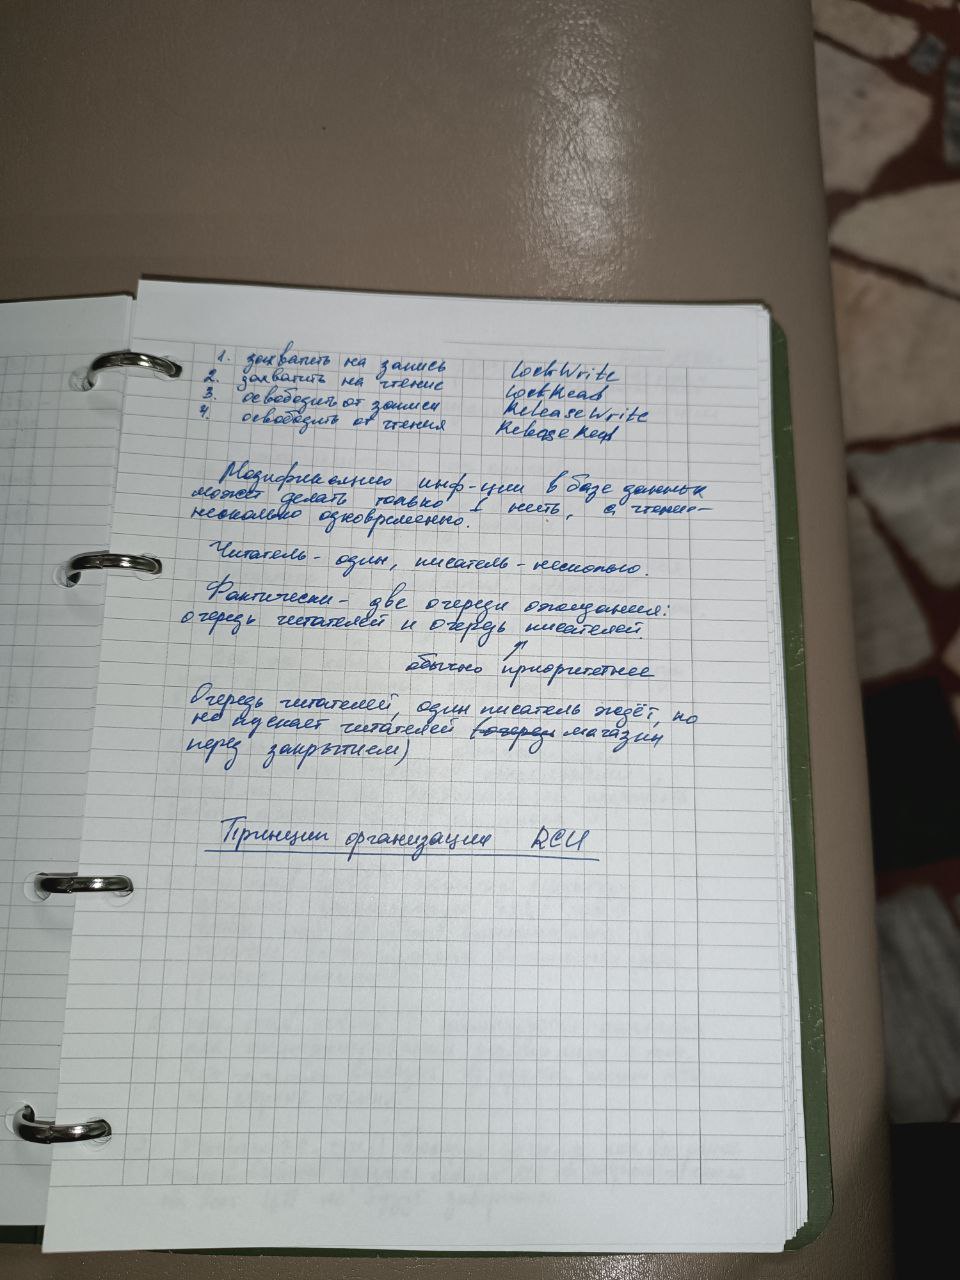 1. захватить на запись LockWrite
2. захватить на чтение LockRead
3. освободить от записи ReleaseWrite
4. освободить от чтения ReleaseRead
Модификацию инф-ции в базе данных
может делать только 1 нить, а чтение-
несколько одновременно.
Читатель - один, писатель - несколько.
Фактически - две очереди ожидания:
очередь читателей и очередь писателей.
обычно приоритетнее
Очередь читателей, один писатель ждёт, но
не пускает читателей (очередь магазин
перед закрытием)
Принцип организации RCU